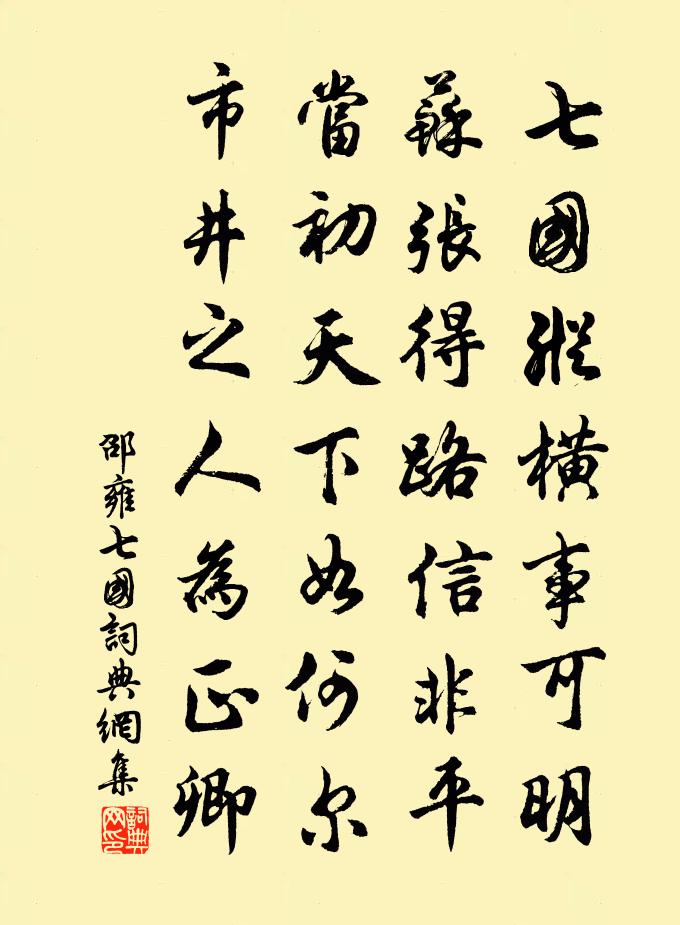 七國縱橫事可明
蘇張得路信非平
當初天下如何尔
市井之人為正卿
邵雍七國詞典網集
詞典网印